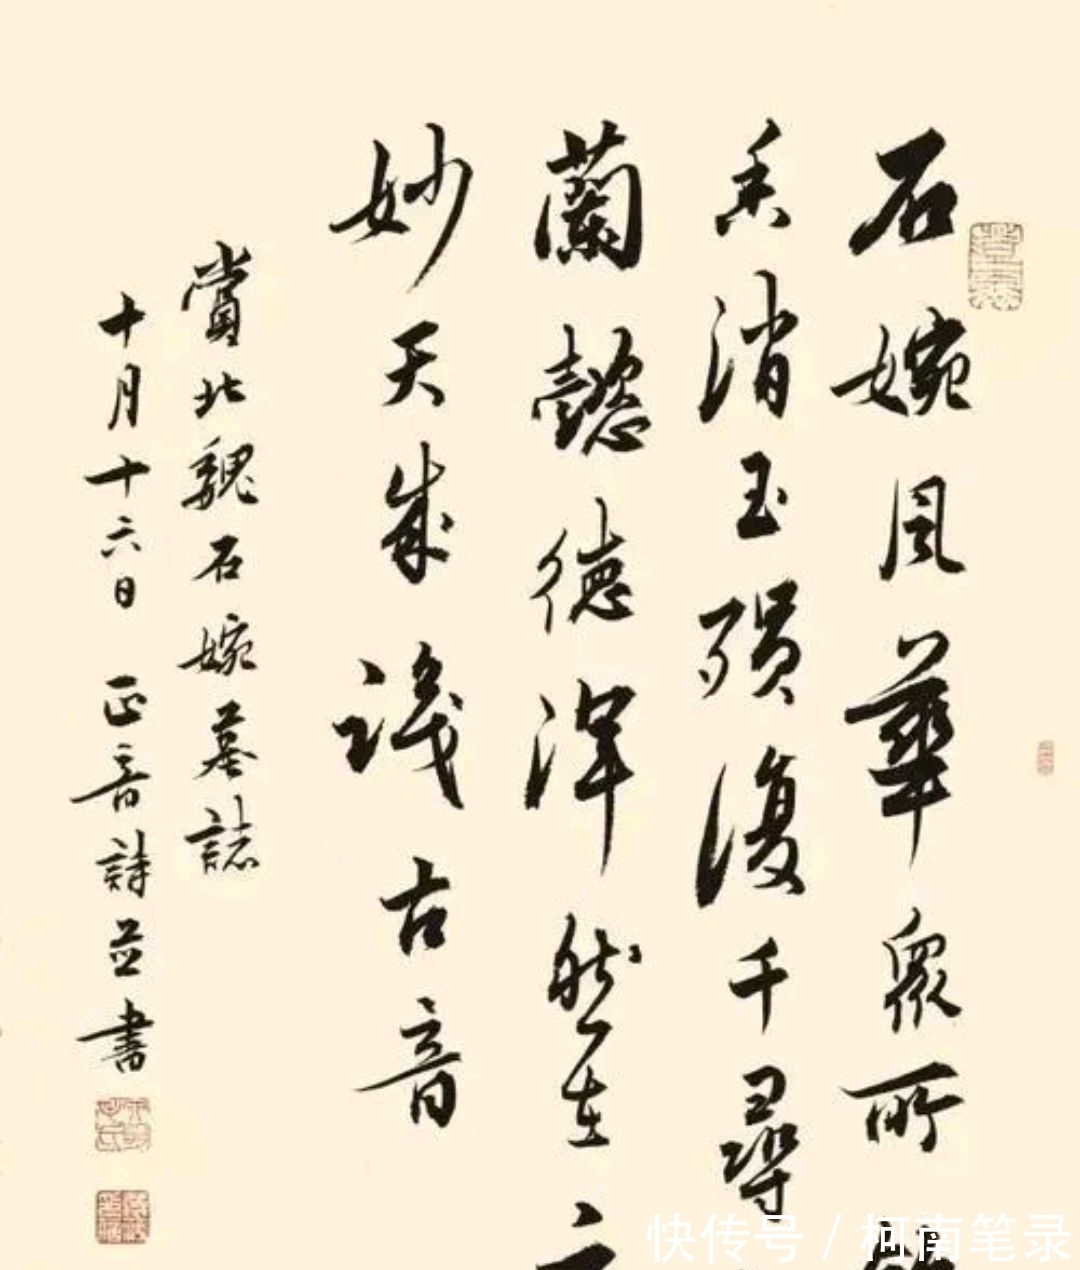 石婉風華眾所
香消玉殞復千尋
蘭懿德渾然在
妙天成識古音
賞北魏石婉墓誌
十月十六日 正音詩並書
快传号 / 柯南笔录